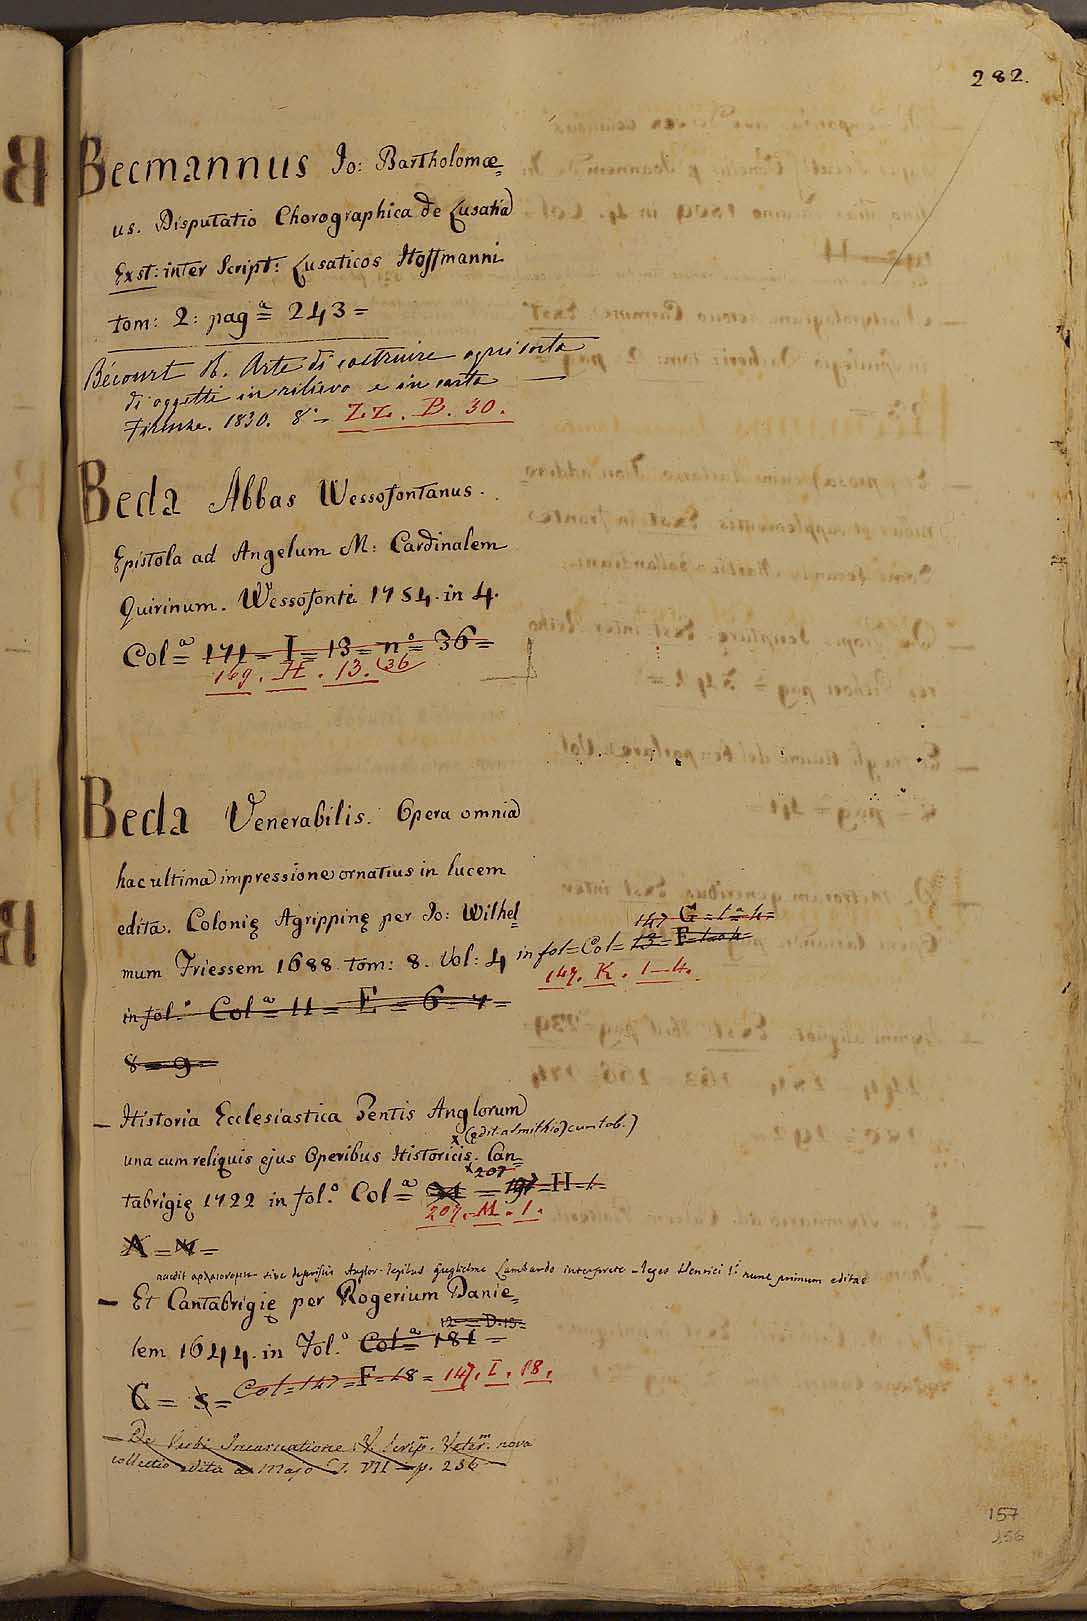 282.
Becmannus Jo: Bartholomæ=
us. Disputatio Chorographica de Lusatia
Exst: inter Script: Lusaticos Hoffmanni
tom: 2: pagᵃ= 243=
Bécourt M. Arte di costruire ogni sorta
di oggetti in rilievo e in carta
Firenze. 1830. 8° = ZZ. B. 30.
Beda Abbas Wessofontanus.
Epistola ad Angelum M: Cardinalem
Quirinum. Wessofonti 1754. in 4.
Colᵃ= 171 = I = 13 = n° = 36 =
169. H. 13. (36
Beda Venerabilis. Opera omnia
hac ultima impressione ornatius in lucem
edita. Colonię Agrippinę per Jo: Wilhel=
147 G = 1 = 4 =
mum Friessem 1688. tom: 8. Vol: 4 in fol = Col = 13 = F =
147. K. 1-4.
in fol° Colᵃ= 11 = E = 6 = 7 =
8 = 9 =
– Historia Ecclesiastica Gentis Anglorum
x (edit. a Smithio) cum tab.)
una cum reliquis ejus Operibus Historicis. Can=
x 207
tabrigię 1722 in fol.° Colᵃ= = 197 = H = 1 =
207. M. 1.
A = =
accedit αρχαιονομια sive de priscis Anglor. legibus Guglielmo Lambardo interprete – leges Henrici I.ⁱ nunc primum editae
– Et Cantabrigię per Rogerium Danie=
12 = D. 15 =
lem 1644. in Fol.° Colᵃ= 181 =
C = 5 = Col = 147 = F = 18 = 147. I. 18.
– De Verbi Incarnatione. V. Scrip. Veter.ᵐ nova
collectio edita a Majo T. VII = p. 236
157
156